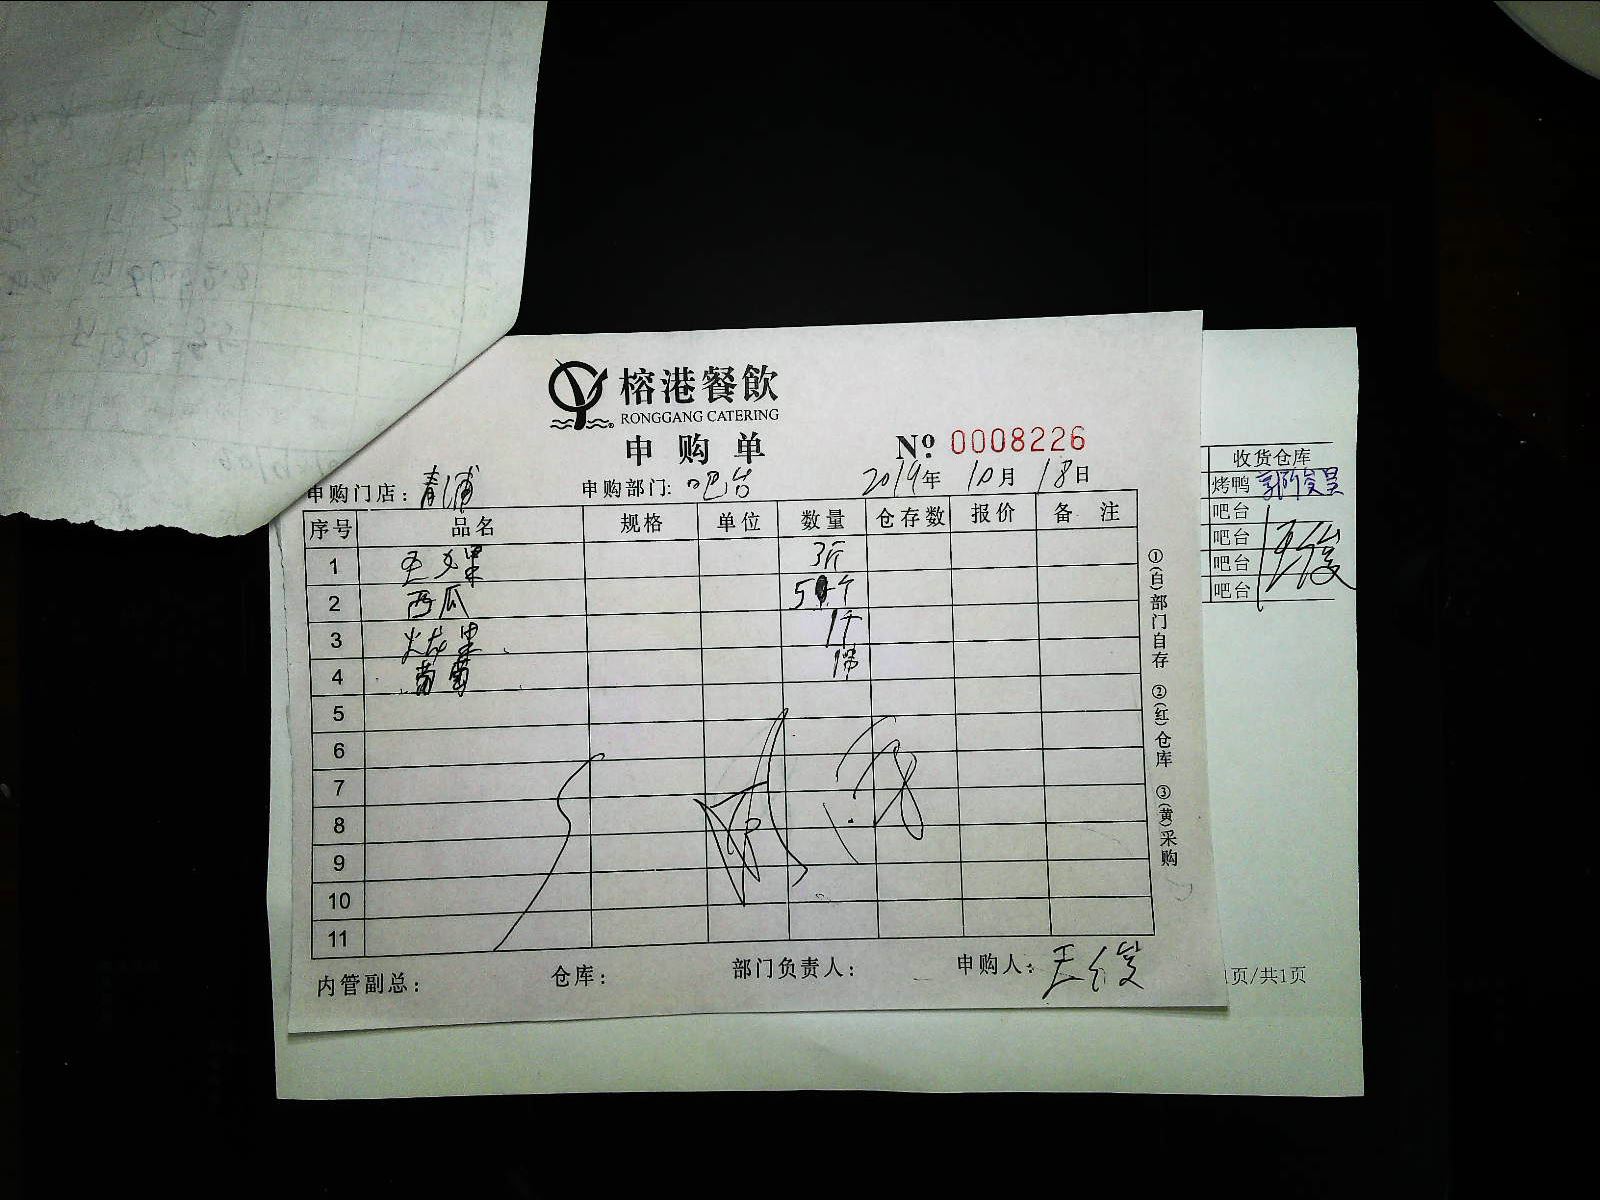 榕港餐飲
RONGGANG CATERING
申购单
№ 0008226
申购门店：青浦 申购部门：吧台 2019年10月18日
序号 品名 规格 单位 数量 仓存数 报价 备注
1 3斤
2 西瓜 5个
3 火龙果 1个
4 葡萄
5
6
7
8
9
10
11
内管副总： 仓库： 部门负责人： 申购人：王俊
①(白)部门自存 ②(红)仓库 ③(黄)采购
收货仓库
烤鸭
吧台
吧台
吧台
吧台
1页/共1页